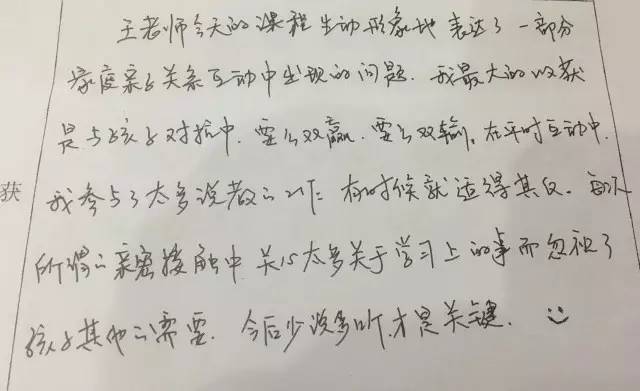 王老师今天的课程生动形象地表达了一部分
家庭亲子关系互动中出现的问题. 我最大的收获
是与孩子对抗中. 要么双赢. 要么双输。在平时互动中.
我参与了太多说教的工作 有时候就适得其反. 每次
获
所谓的亲密接触中 关心太多关于学习上的事而忽视了
孩子其他的需要. 今后少说多听.才是关键.